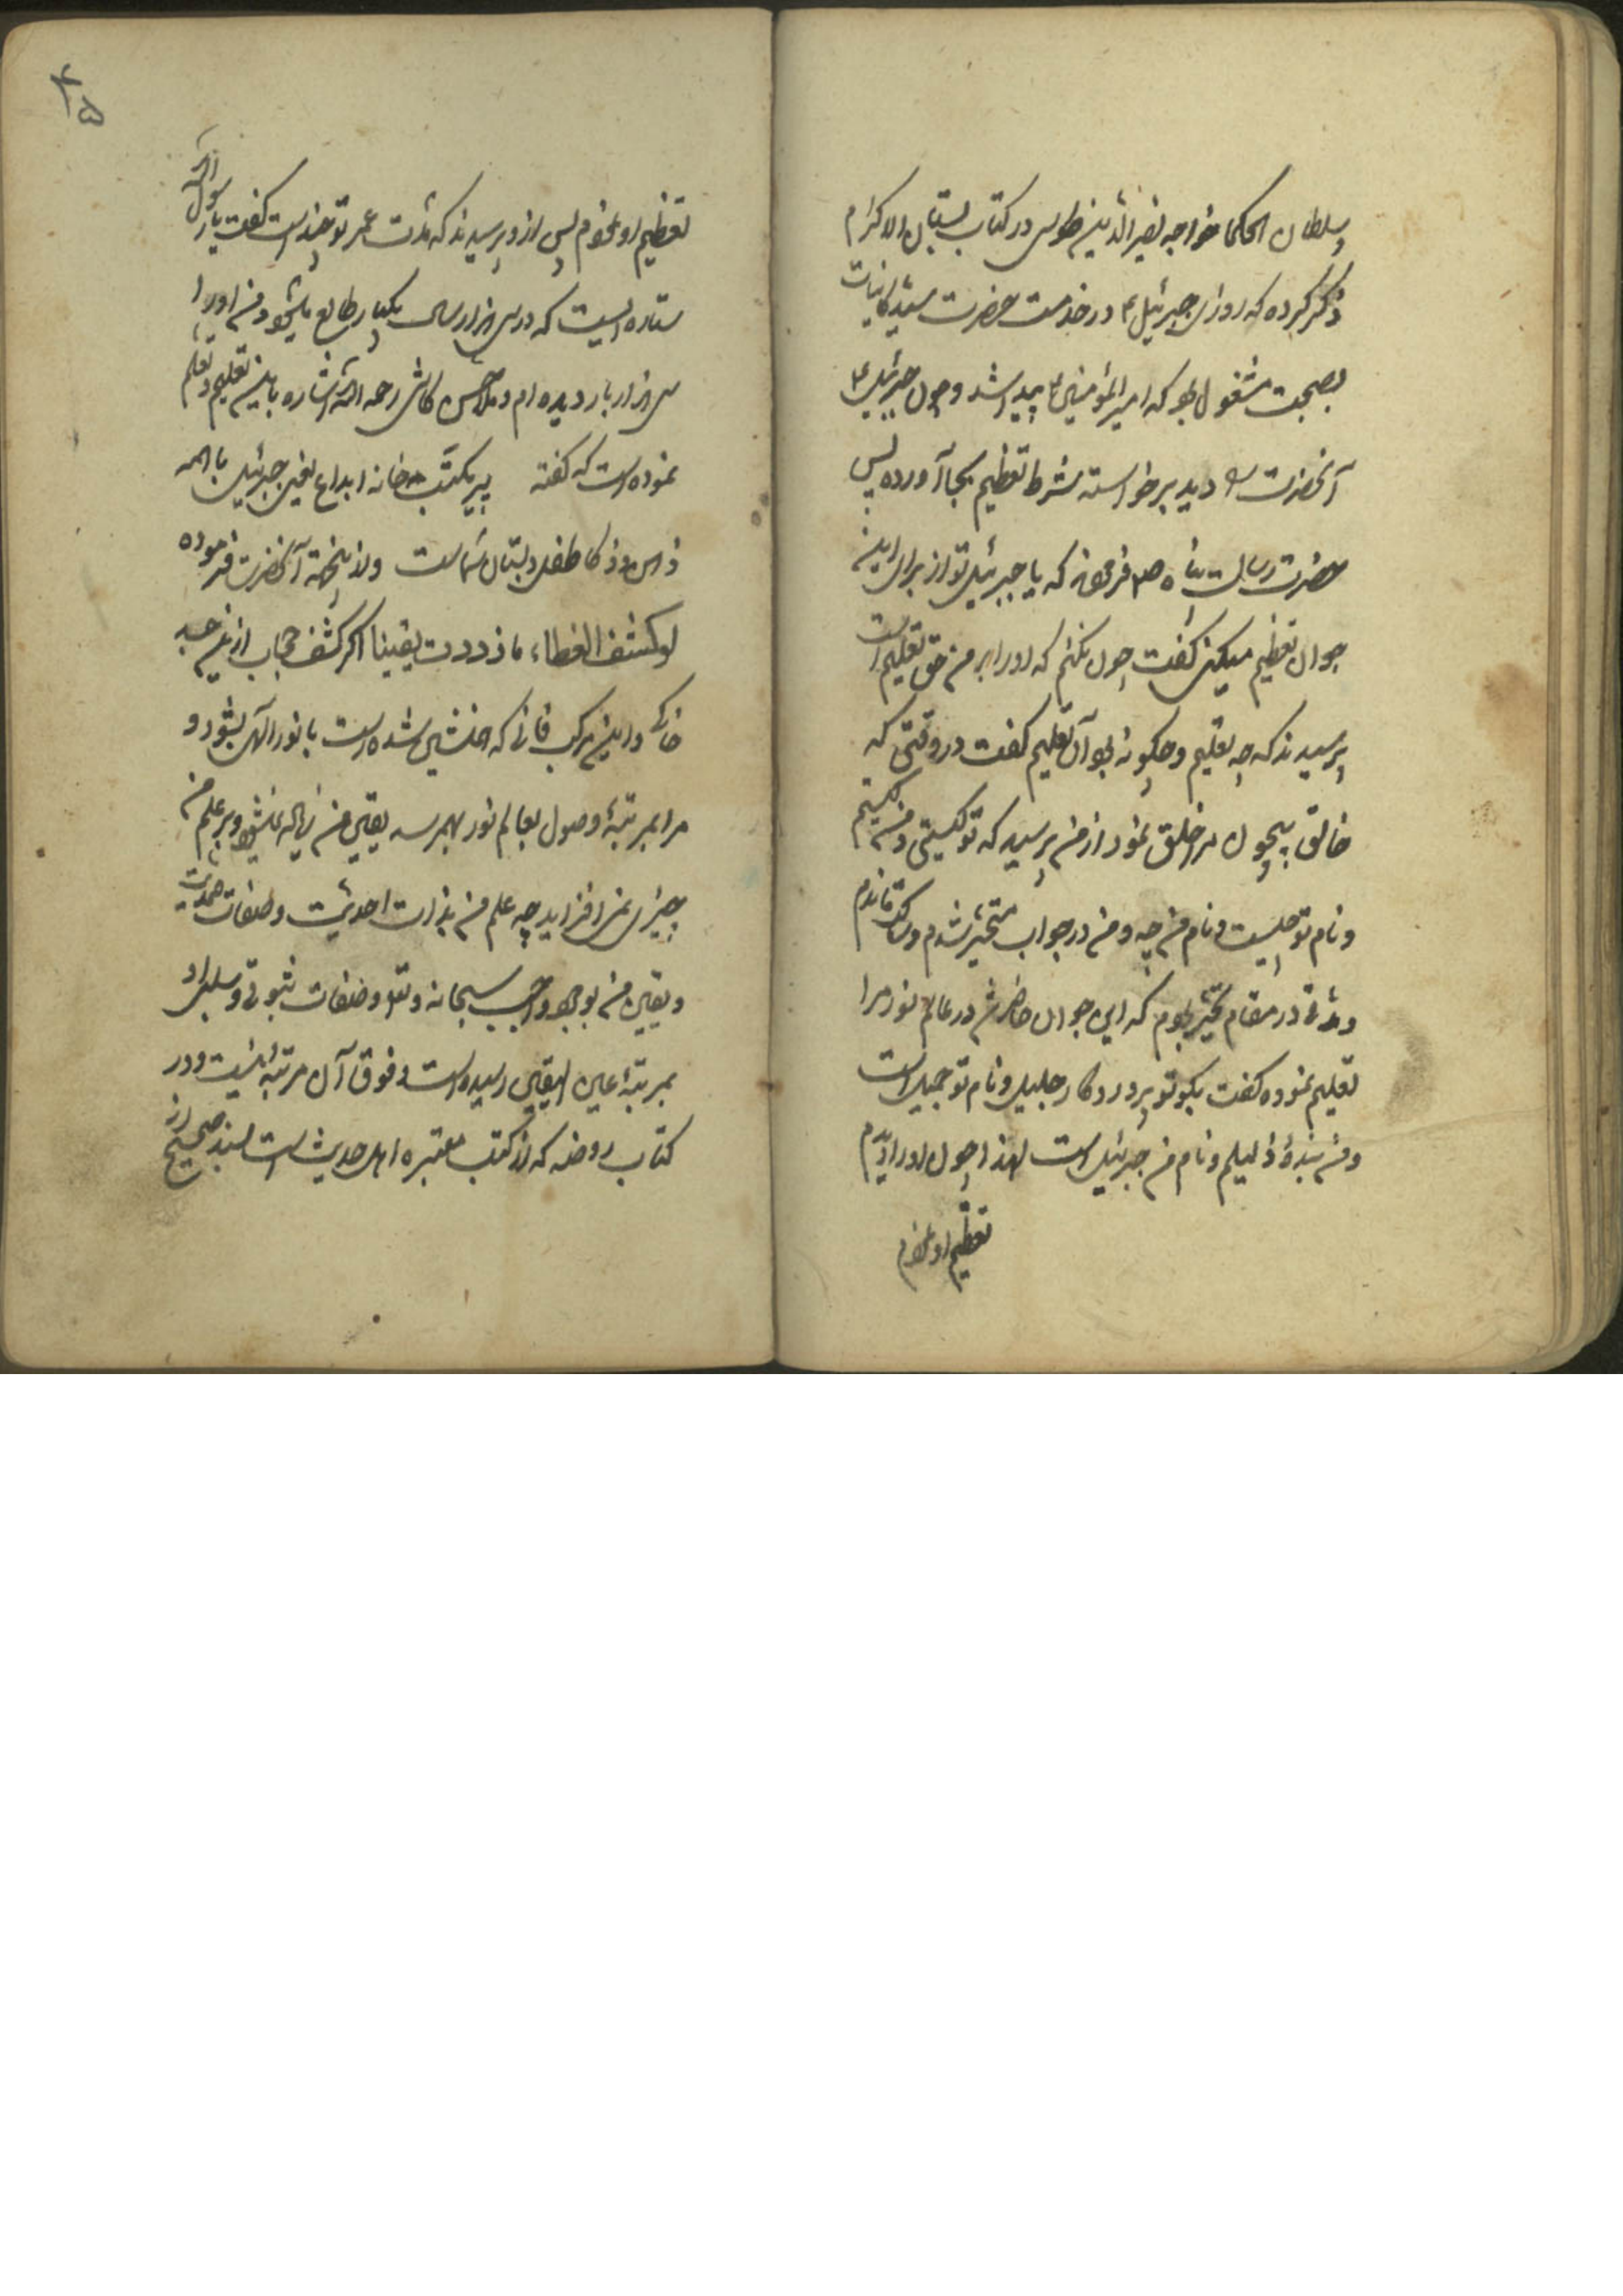 سلطان الحکما خواجه نصیر الدین طوسی در کتاب بستان الاکرام
ذکر کرده که روزی جبرئیل ۴ در خدمت حضرت سید کاینات
بصحبت مشغول بود که امیر المؤمنین ۴ پیدا شد و چون جبرئیل ۴
آنحضرت را دید برخواسته شرط تعظیم بجا آورده پس
حضرت رسالت پناه ص فرمودند که یا جبرئیل تو از برای این
جوان تعظیم میکنی گفت چون نکنم که او را بر من حق تعلیم است
پرسیدند که چه تعلیم و چکونه بود آن تعلیم کفت در وقتی که
خالق بیچون مرا خلق نمود از من پرسید که تو کیستی و من کیستم
و نام تو چیست و نام من چه و من در جواب متحیر شدم و ساکت ماندم
و مدتی در مقام تحیر بودم که این جوان حاضر شد در عالم نور مرا
تعلیم نموده کفت بکو تو پروردکار جلیل و نام تو جمیل است
و من بندهٔ ذلیلم و نام من جبرئیل است لهذا چون او را دیدم
تعظیم او نمودم
۴۵
تعظیم او نمودم پس از او پرسیدند که مدت عمر تو چند است کفت یا رسول الله
ستاره ایست که در سی هزار سال یکبار طالع میشود من او را
سی هزار بار دیده ام و ملا محسن کاشی رحمه الله اشاره باین تعلیم و تعلم
نموده است که کفته پیر مکتب خانه ابداع یعنی جبرئیل با همه
ذهن و ذکا طفل دبستان شماست و از اینجهة آنحضرت فرموده
لو کشف الغطاء ما ازددت یقینا اکر کشف حجاب از این جسد
خاکی و این مرکب فانی که همنشین شده است با نور الهی بشود و
مرا بمرتبهٔ وصول بعالم نور بهمرسد یقین من زیاله نمیشود و بر علم من
چیزی نمی افزاید چه علم من بذات احدیت و صفات صمدیت
و یقین من بوجود واجب سبحانه و تعالی و صفات ثبوتی و سلبی او
بمرتبهٔ عین الیقین رسیده است و فوق آن مرتبه نیست و در
کتاب روضه که از کتب معتبره اهل حدیث است بسند صحیح از